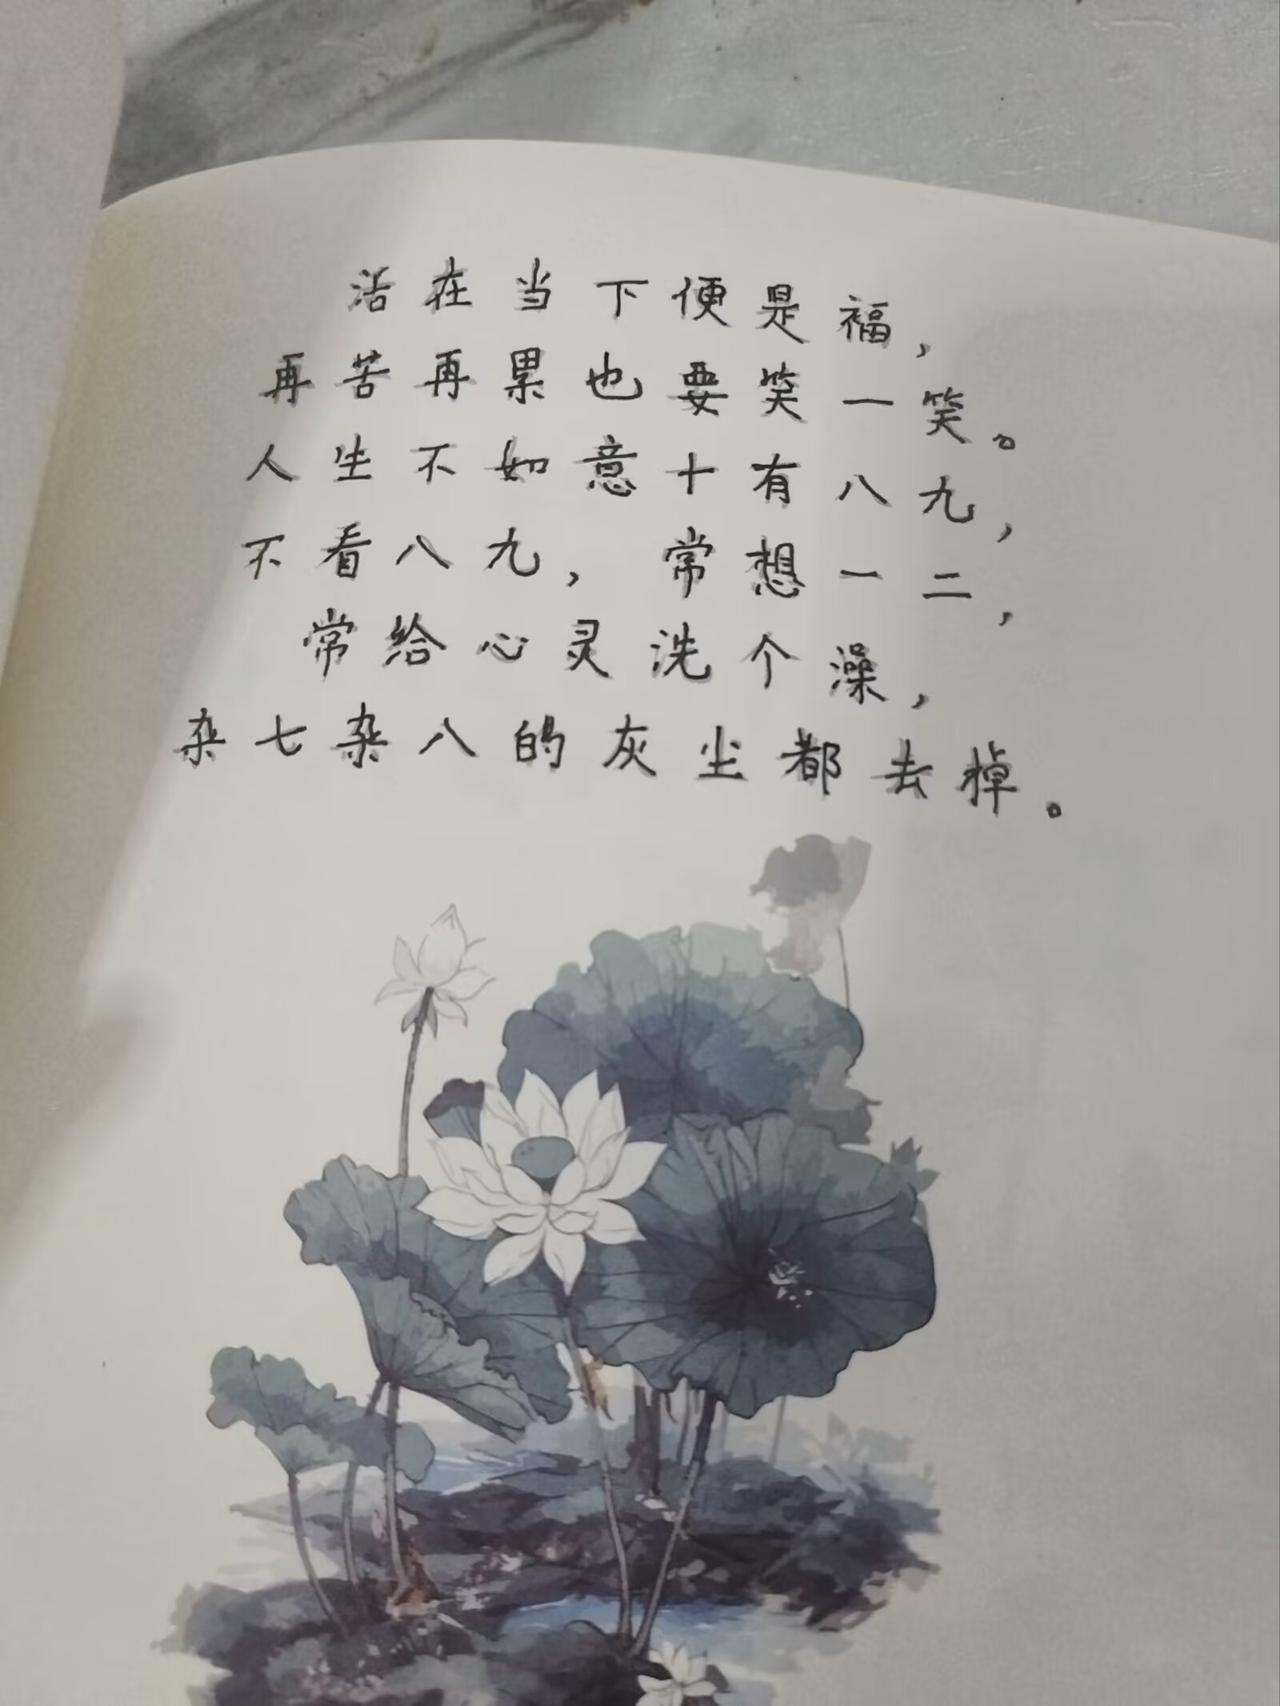 活在当下便是福，
再苦再累也要笑一笑。
人生不如意十有八九，
不看八九，常想一二，
常给心灵洗个澡，
杂七杂八的灰尘都去掉。